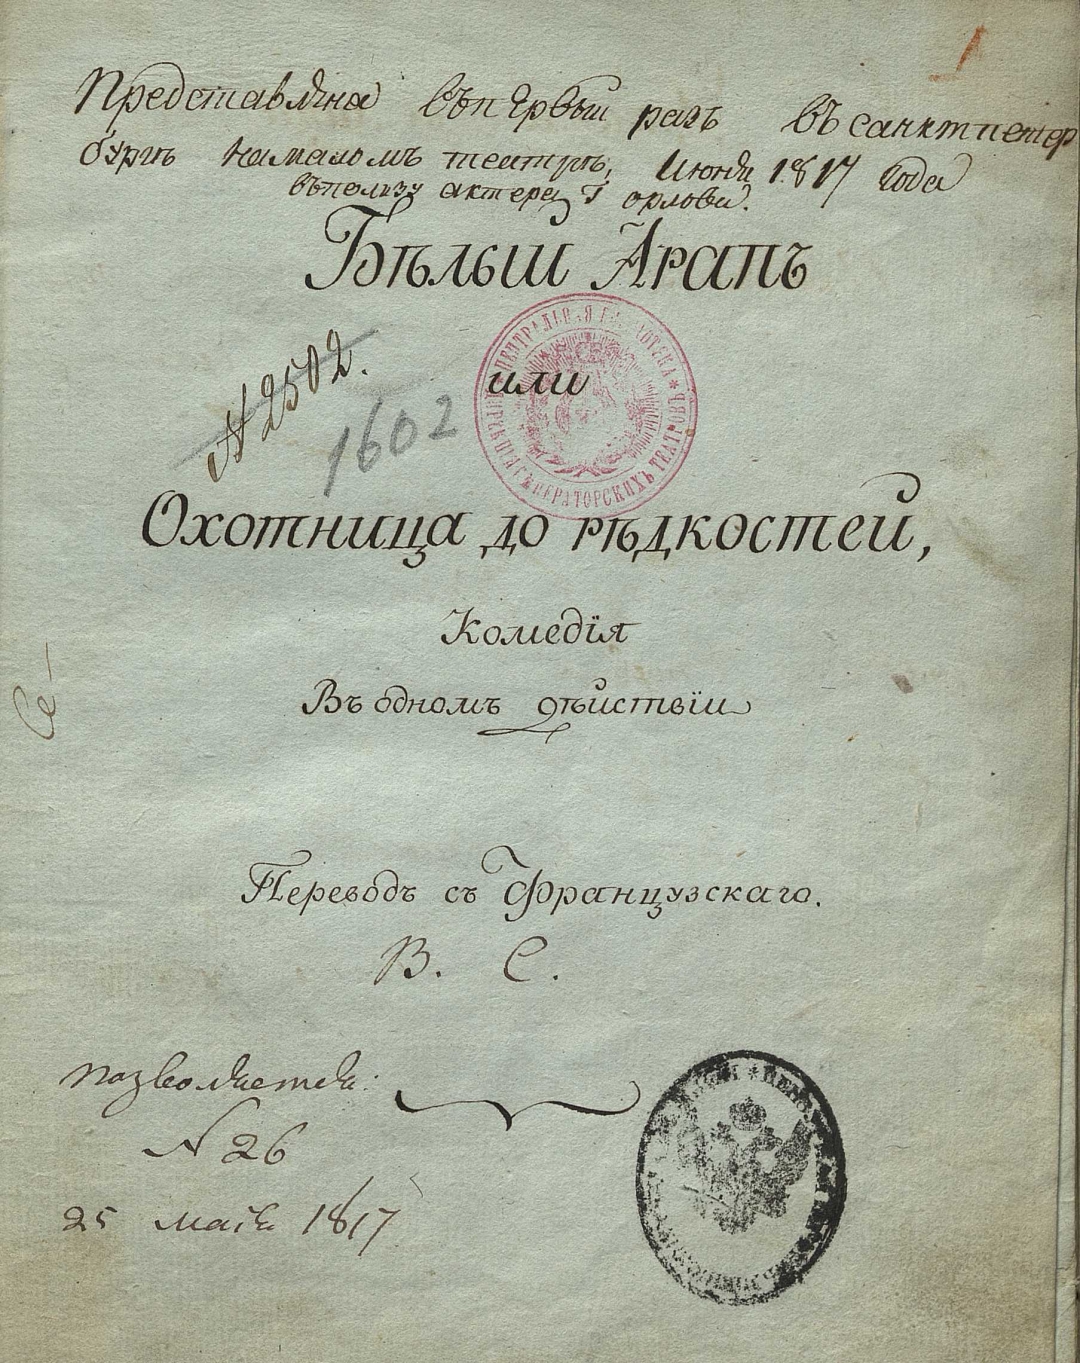 1
Представлѣна въпервый разъ въсанктпетер
бургѣ намаломъ театрѣ, Июня 1817 Года
въпользу актера Г орлова.
Бѣлый Арапъ
№ 2502.
или
1602
ЦЕНТРАЛЬНАЯ БИБЛІОТЕКА * ИМПЕРАТОРСКИХЪ ТЕАТРОВЪ
Охотница до рѣдкостей,
Комедія
Въ одномъ дѣйствіи
Се-
Переводъ съ Французскаго.
В. С.
позволяется:
N 26
25 маія 1817